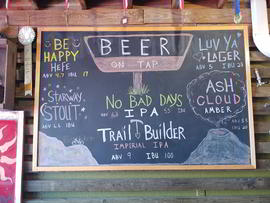 BEER
ON TAP
BE
HAPPY
HEFE
ABV 4.7 IBU 17
STARWAY
STOUT
NO BAD DAYS
IPA
TRAIL BUILDER
IMPERIAL IPA
ABV 9 IBU 100
LUV YA
LAGER
ABV 5 IBU
ASH
CLOUD
AMBER